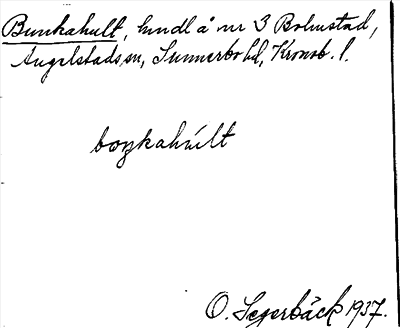 Bunkahult, hmdl å nr 3 Bolmstad,
Angelstads sn, Sunnerbo hd, Kronob. l.
boŋkahùlt
O. Segerbäck 1937.